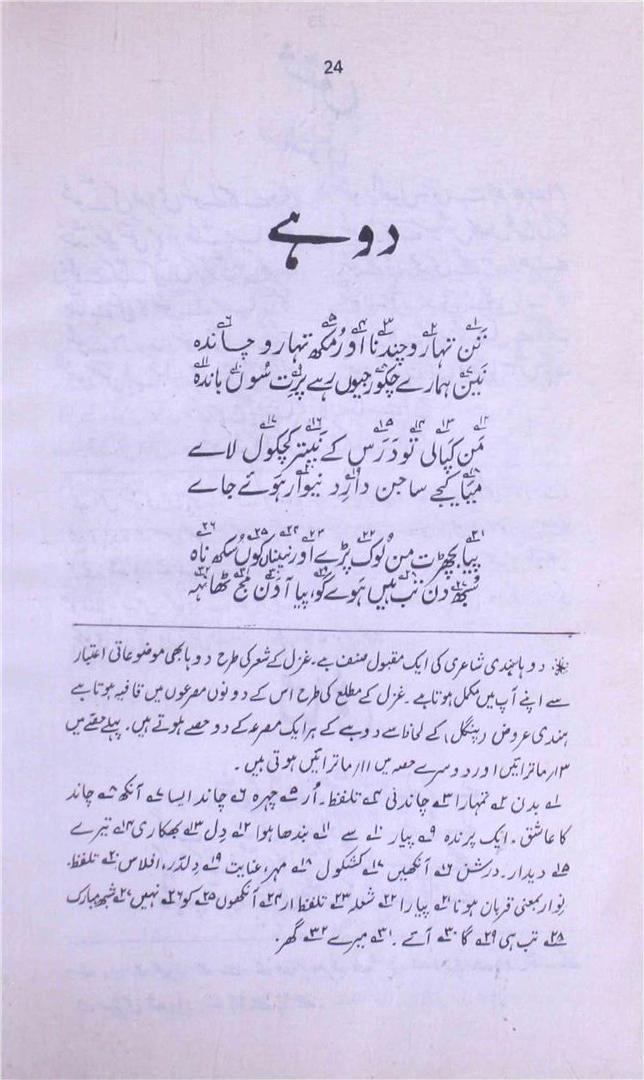 24
دوہے
تَن تہارو چندنا اور مُکھ تہارو چاندہ
نَین ہمارے چکور جیوں رہے پرِت سُوں باندہ
مَن کپالی تو دَرَس کے نَیتر کچکول لاے
مَیَا کیجے ساجن دارِد نیوار ہوئے جاے
پیا بچھڑت من لُوک پڑے اور نیناں کوں سُکھ ناہ
سُبھ دن تب ہیں ہوے گو، پیا آدِن مُج ٹھانہہ
٭ دوہا ہندی شاعری کی ایک مقبول صنف ہے۔ غزل کے شعر کی طرح دوہا بھی موضوعاتی اعتبار
سے اپنے آپ میں مکمل ہوتا ہے۔ غزل کے مطلع کی طرح اس کے دونوں مصرعوں میں قافیہ ہوتا ہے
ہندی عروض (پنگل) کے لحاظ سے دوہے کے ہر ایک مصرعہ کے دو حصے ہوتے ہیں۔ پہلے حصّے میں
۱۳ ماترائیں اور دوسرے حصہ میں ۱۱ ماترائیں ہوتی ہیں۔
۱ے بدن ۲ے تمہارا ۳ے چاندنی ۴ے تلفظ۔ اُر ۵ے چہرہ ۶ے چاند ایسا ۷ے آنکھ ۸ے چاند
کا عاشق۔ ایک پرندہ ۹ے پیار ۱۰ے سے ۱۱ے بندھا ہوا ۱۲ے دِل ۱۳ے بھکاری ۱۴ے تیرے
۱۵ے دیدار۔ درشن ۱۶ے آنکھیں ۱۷ے کشکول ۱۸ے مہر، عنایت ۱۹ے دِلدّر، افلاس ۲۰ے تلفظ۔
نِوار بمعنی قربان ہونا ۲۱ے پیارا ۲۲ے شعلہ ۲۳ے تلفظ ار ۲۴ے آنکھوں ۲۵ے کو ۲۶ے نہیں ۲۷ے شبھ، مبارک
۲۸ے تب ہی ۲۹ے گا ۳۰ے آئے ۔ ۳۱ے میرے ۳۲ے گھر۔